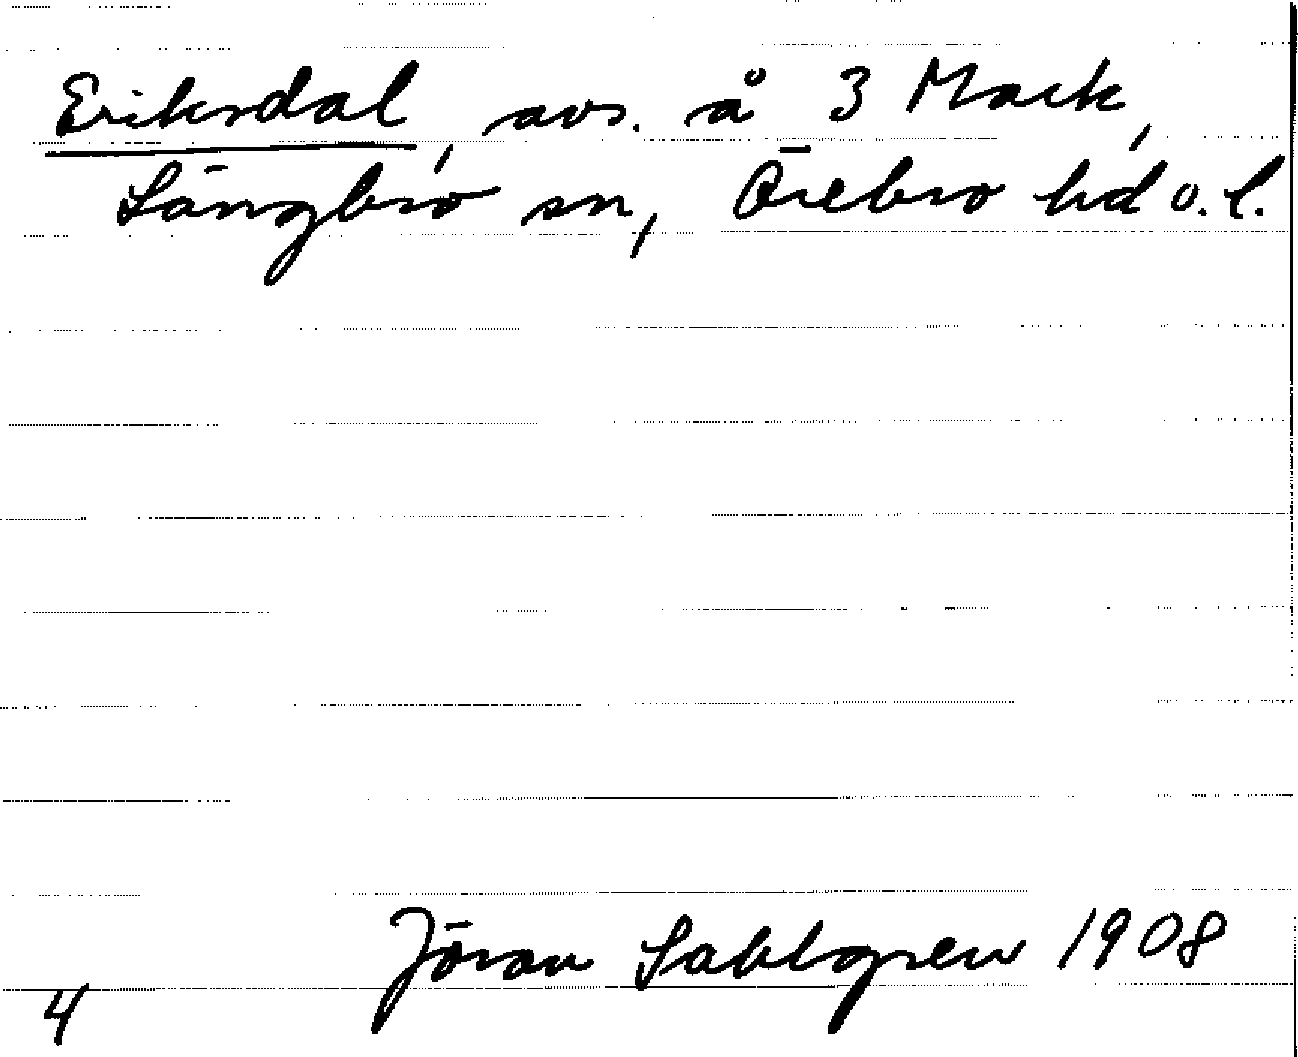 Eriksdal, avs. å 3 Mark,
Längbro sn, Örebro hd o. l.
Jöran Sahlgren 1908
4